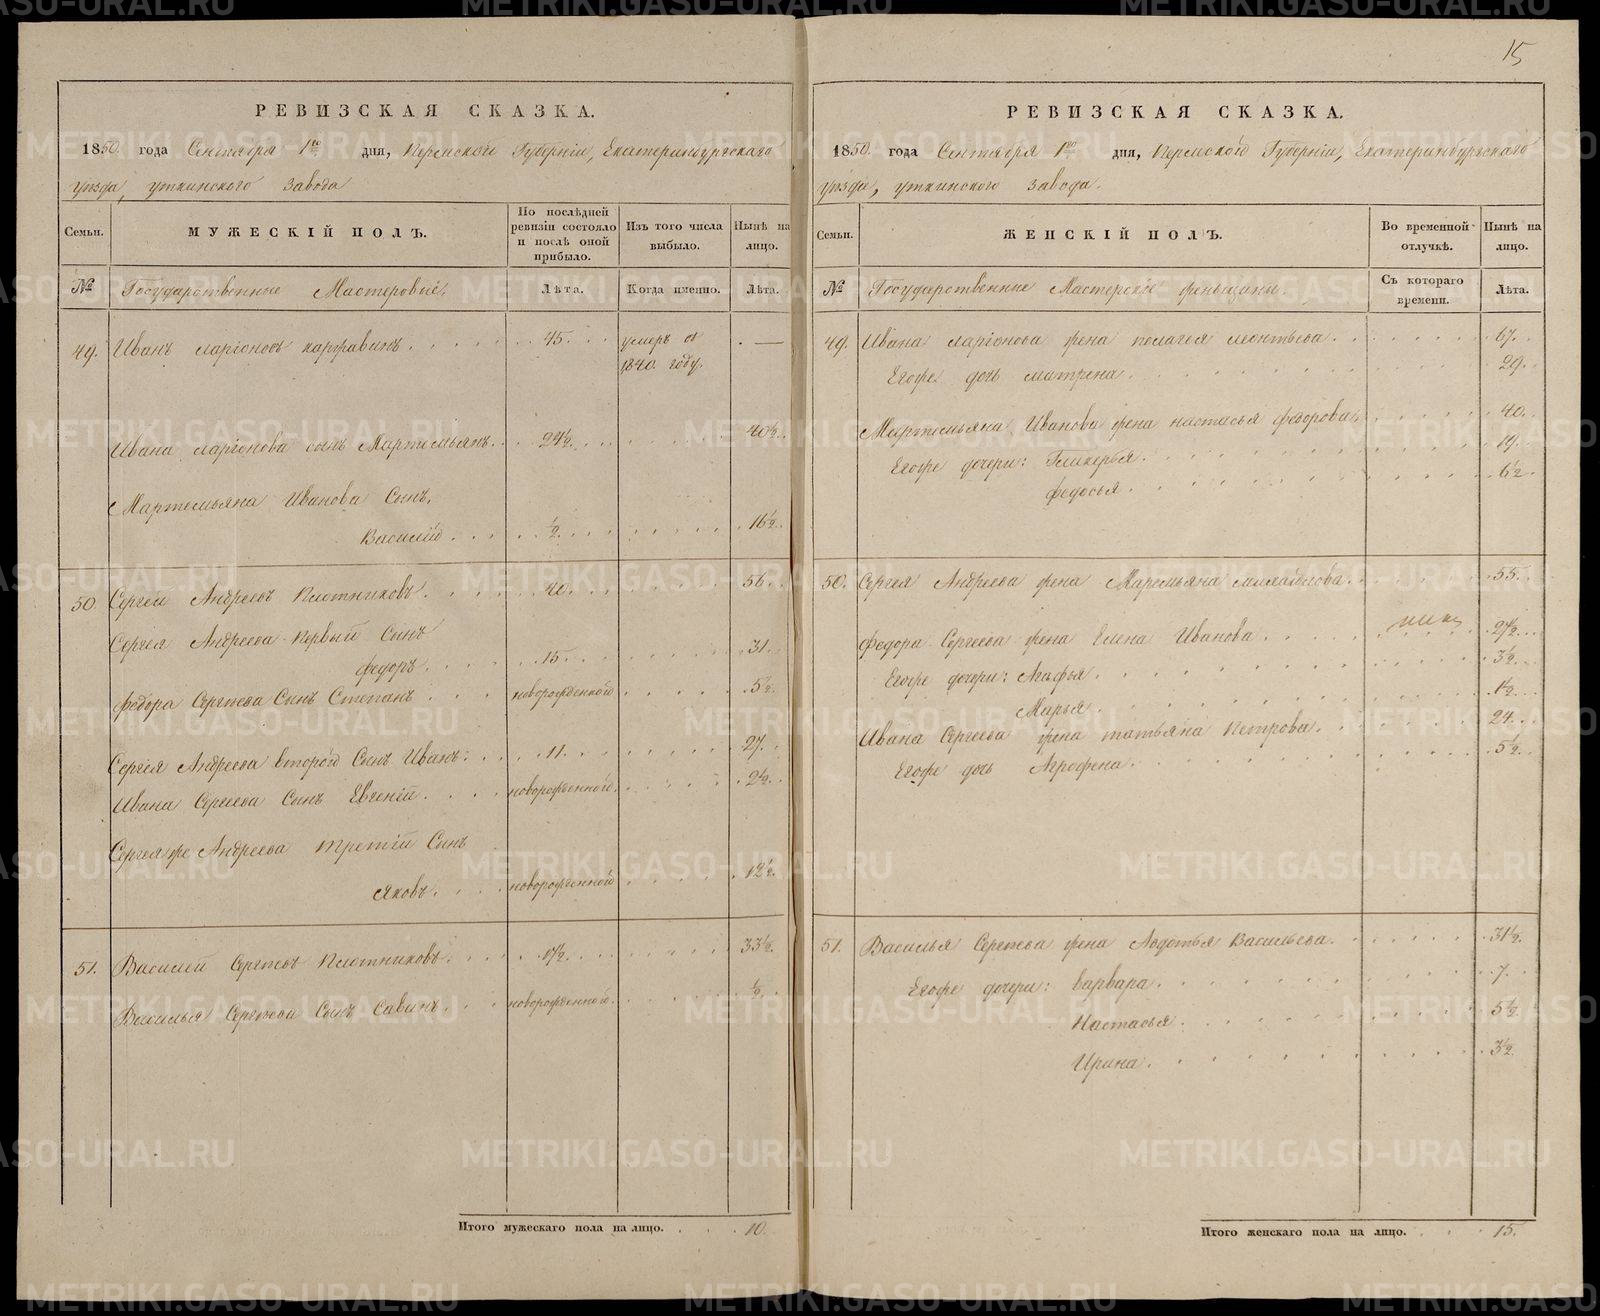 15
РЕВИЗСКАЯ СКАЗКА.
1850. года Сентября 1го дня, Пермской Губернiи, Екатеринбургскаго
уѣзда, уткинского завода
Семьи.
МУЖЕСКIЙ ПОЛЪ.
По послѣдней ревизiи состояло и послѣ оной прибыло.
Изъ того числа выбыло.
Нынѣ на лицо.
№
Государственные Мастеровые.
Лѣта.
Когда именно.
Лѣта.
49. Иванъ ларiоновъ каргавинъ 45. умеръ въ —
1840. году.
Ивана ларiонова сынъ Мартемьянъ. 24½. 40½.
Мартемьяна Иванова Сынъ.
Василiй ½. 16½.
50. Сергей Андреевъ Плотниковъ. 40. 56.
Сергея Андреева первый Сынъ
федоръ. 15. 31.
федора Сергѣева Сынъ Степанъ новорожденной 5½.
Сергея Андреева второй Сынъ Иванъ: 11. 27.
Ивана Сергѣева Сынъ Евгенiй. новорожденной. 2½.
Сергея же Андреева третiй Сынъ
Яковъ. новорожденной 12½.
51. Василей Сергѣевъ Плотниковъ. 17½. 33½.
Василья Сергѣева Сынъ Савинъ. новорожденной. ½.
Итого мужескаго пола на лицо. 10.
РЕВИЗСКАЯ СКАЗКА.
1850. года Сентября 1го дня, Пермской Губернiи, Екатеринбургскаго
уѣзда, уткинского завода.
Семьи.
ЖЕНСКIЙ ПОЛЪ.
Во временной отлучкѣ.
Нынѣ на лицо.
№
Государственные Мастерскiе женьщины.
Съ котораго времени.
Лѣта.
49. Ивана ларiонова жена пелагея леонтьева 67.
Егоже дочь матрена. 29.
Мартемьяна Иванова жена настасья федорова. 40.
Егоже дочери: Гликерья. 19.
федосья. 6½
50. Сергея Андреева жена Маремьяна михайлова. 55.
федора Сергеева жена Елена Иванова 27½.
Егоже дочери: Агафья. 3½.
Марья. 1½.
Ивана Сергеева жена татьяна Петрова. 24.
Егоже дочь Агрофена. 5½.
51. Василья Сергѣева жена Авдотья Васильева. 31½.
Егоже дочери: варвара. 7.
Настасья. 5½.
Ирина. 3½.
Итого женскаго пола на лицо. 15.
METRIKI.GASO-URAL.RU